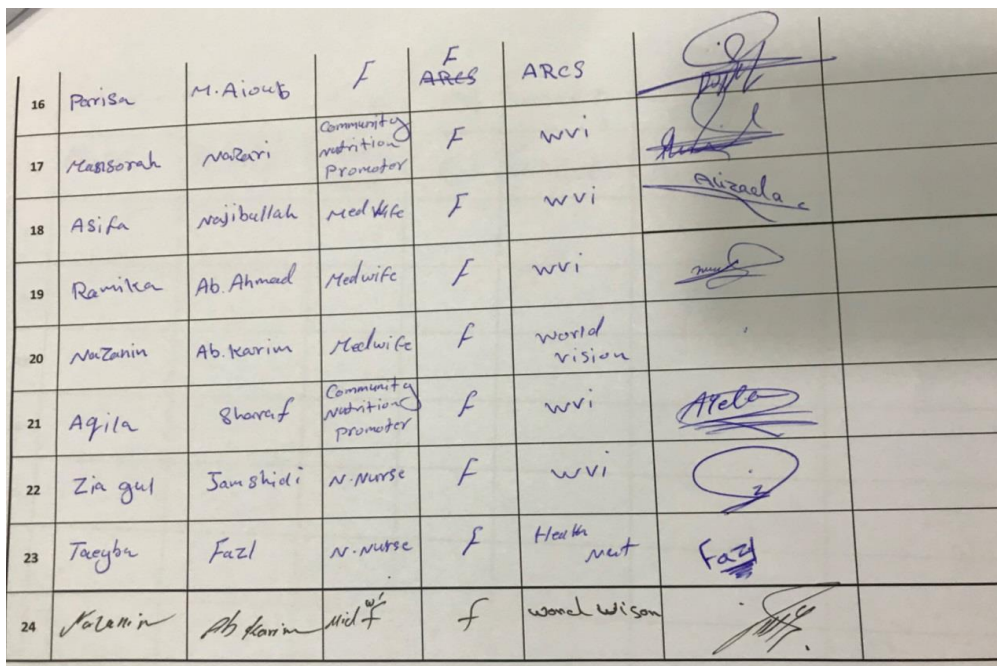 16 Parisa M.Aioub F F ARCS ARCS
17 Massorah Nazari Community Nutrition Promoter F wvi
18 Asifa Najibullah Med Wife F wvi Alizada
19 Ramika Ab. Ahmad Medwife F wvi
20 Nazanin Ab. Karim Medwife F world vision
21 Aqila Sharaf Community Nutrition Promoter F wvi
22 Zia gul Jamshidi N. Nurse F wvi
23 Taeyba Fazl N. Nurse F Health Net Fazl
24 Nazanin Ab Karim Midwif f